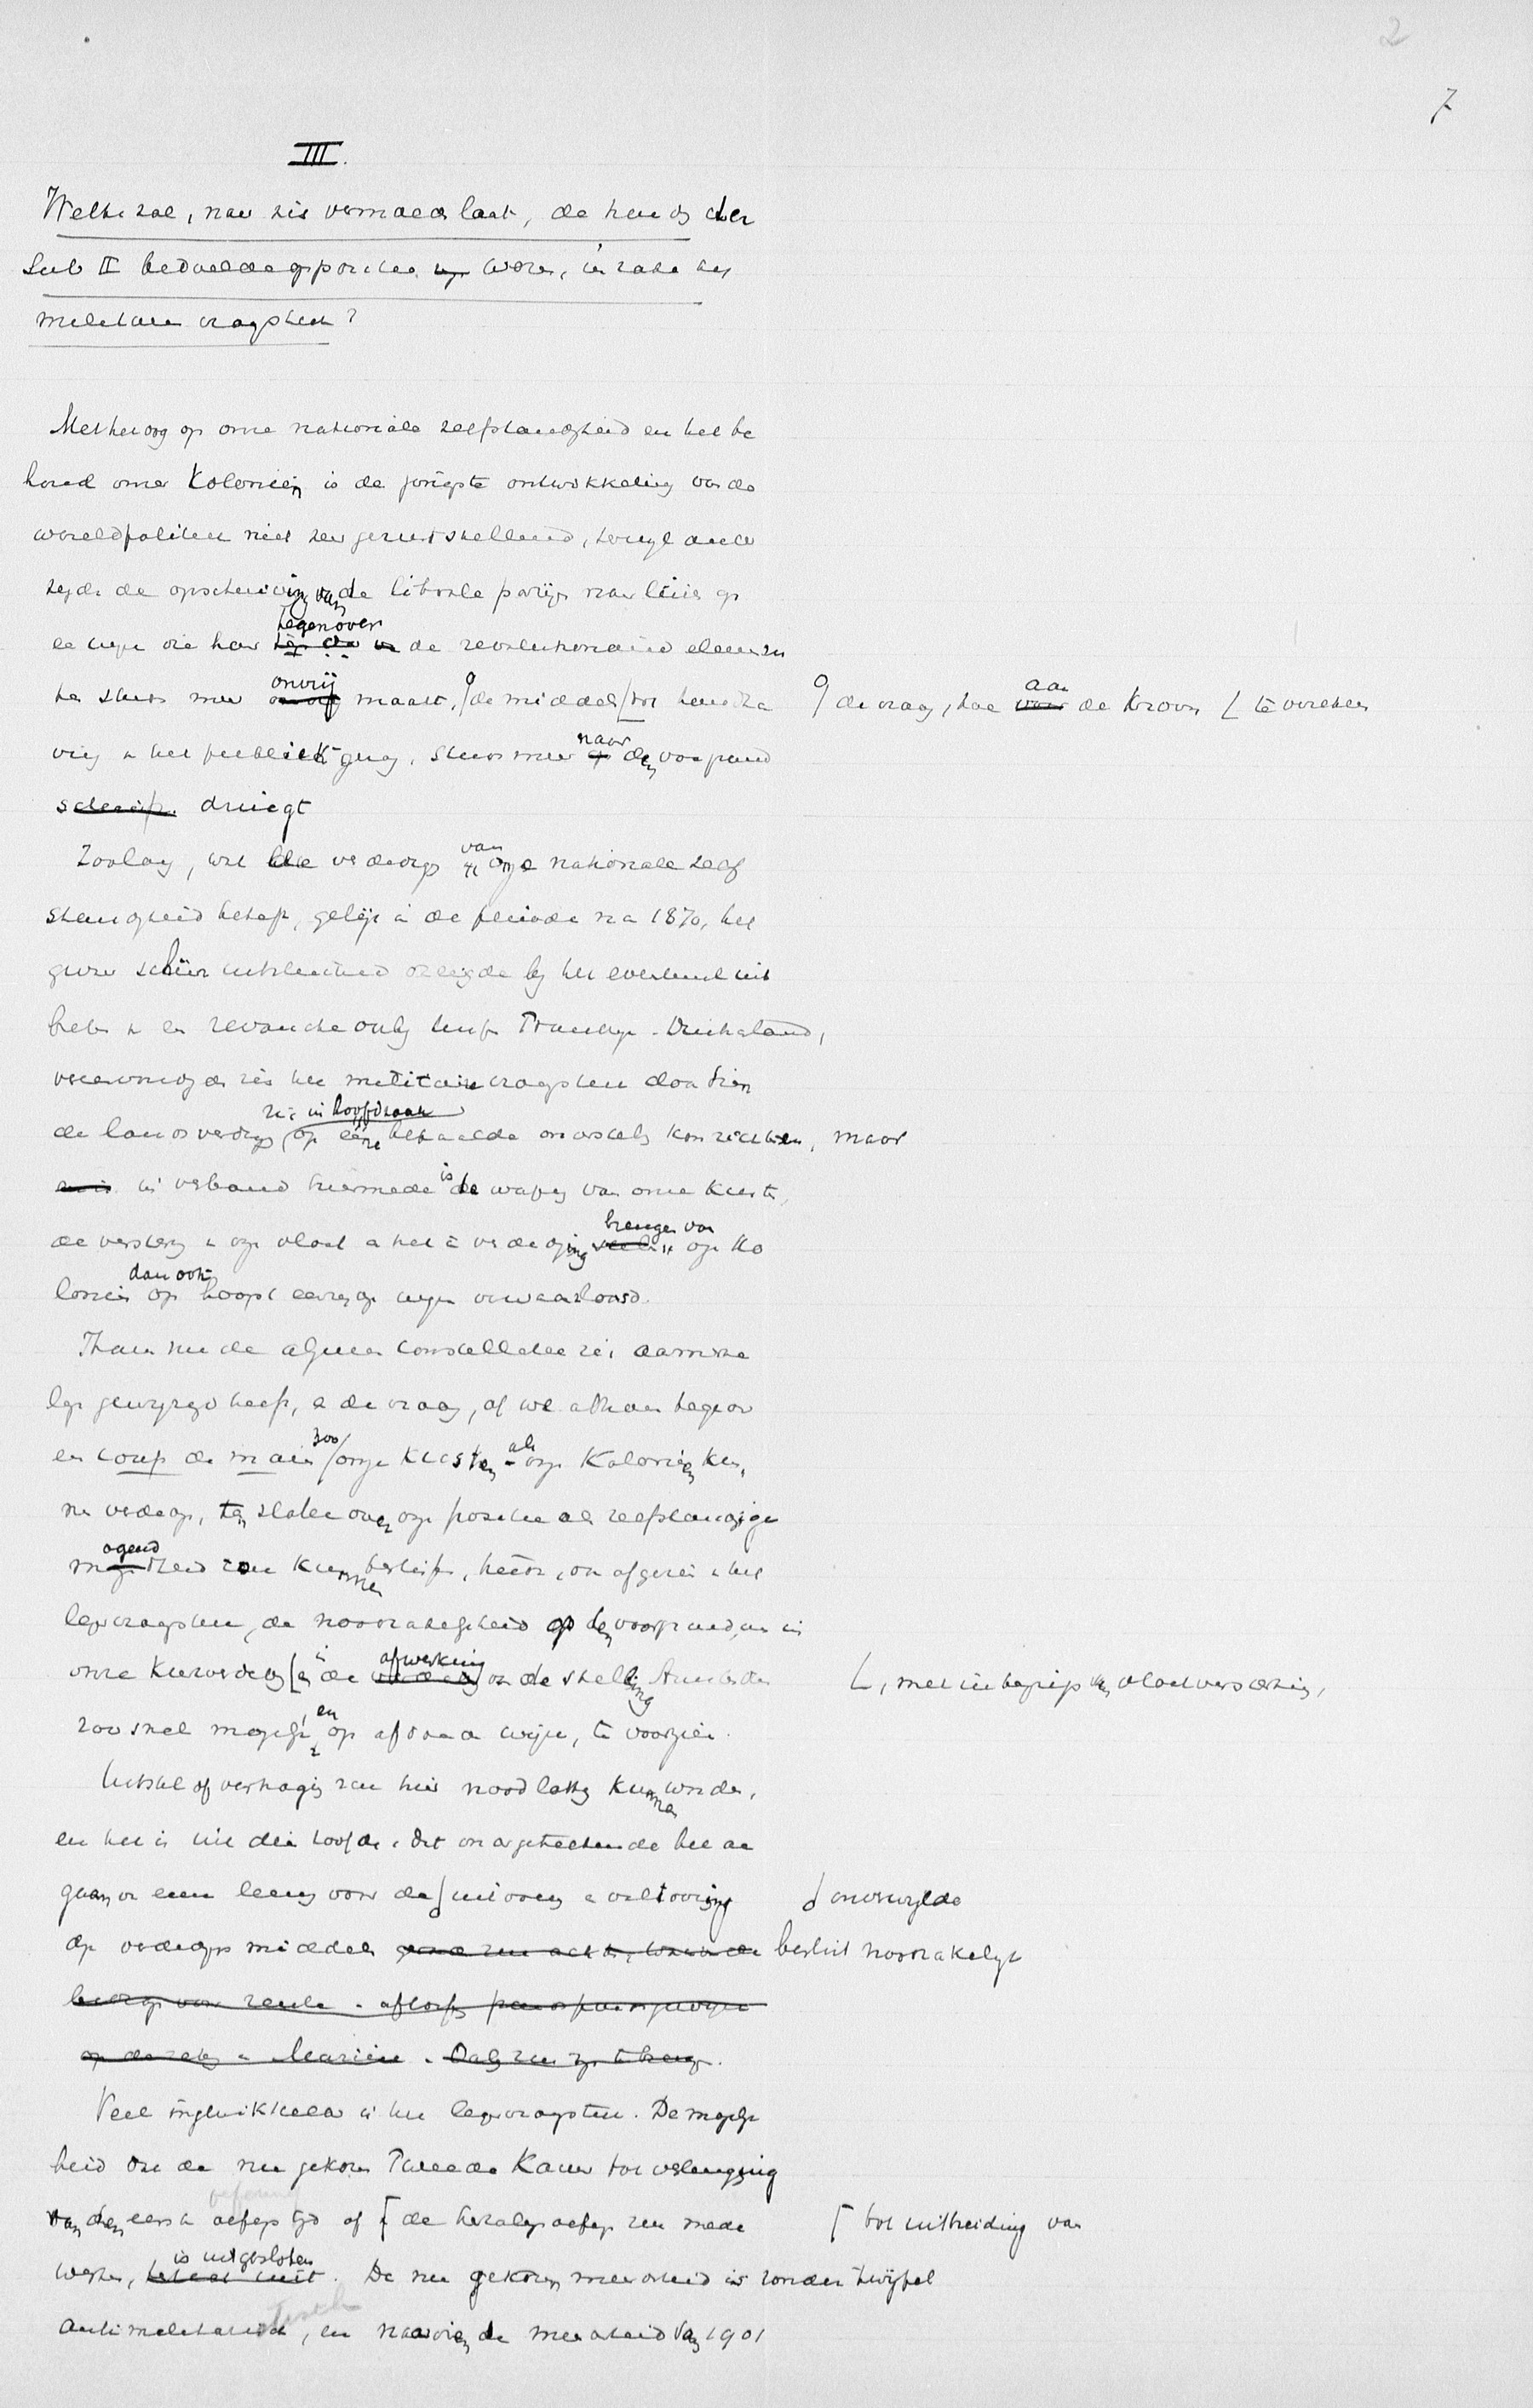 2
7
III.
Welke zal, naar zich vermoeden laat, de houding der
sub II bedoelde oppositie wezen, in zake het
militaire vraagstuk?
Met het oog op onze nationale zelfstandigheid en het be
houd onzer Koloniën is de jongste ontwikkeling van de
wereldpolitiek niet zeer geruststellend, terwijl ander
zijds de opschuiving van de liberale partijen naar links op
een wijze die haar tegenover de revolutionaire elementen
steeds meer onvrij maakt, de vraag, hoe aan de Kroon de middelen te verzekeren tot handha
ving van het publiek gezag, steeds meer naar den voorgrond
dringt
Zoolang, wat de verdediging van onze nationale zelf
standigheid betreft, gelijk in de periode na 1870, het
gevaar schier uitsluitend dreigde bij het eventueel uit
breken van een revanche oorlog tusschen Frankrijk - Duitschland,
vereenvoudigde zich het militaire vraagstuk doordien
de landsverdediging zich in hoofdzaak op eene bepaalde onderstelling kon richten, maar
in verband hiermede is de wapening van onze kusten
de versterking van onze vloot en het in verdediging brengen van onze Ko
loniën dan ook op hoogst ernstige wijze verwaarloosd.
Thans nu de algemeene constellatie zich aanmerke
lijk gewijzigd heeft, en de vraag, of we althans tegenover
een coup de main zoo onze Kusten als onze Koloniën kun
nen verdedigen, ten slotte over onze positie als zelfstandige
mogendheid zou kunnen beslissen, treedt, nu afgezien van het
legervraagstuk, de noodzakelijkheid op den voorgrond, om in
onze kustverdediging, met inbegrip van vlootversterking, en in de afwerking van de stelling Amsterdam
zoo snel mogelijk, en op afdoende wijze, te voorzien.
Uitstel of vertraging zou hier noodlottig kunnen worden,
en het is uit dien hoofde, dat ondergeteekende het aan
gaan van eene leening voor de onverwijlde uitvoering en voltooiing
der verdedigingsmiddelen beslist noodzakelijk
Veel ingewikkelder is het legervraagstuk. De mogelijk
heid dat de nu gekozen Tweede Kamer tot verlenging
van den eersten oefeningstijd of tot uitbreiding van de herhalingsoefeningen zou mede
werken, is uitgesloten. De nu gekozen meerderheid is zonder twijfel
antimilitaristisch, en naardien de meerderheid van 1901